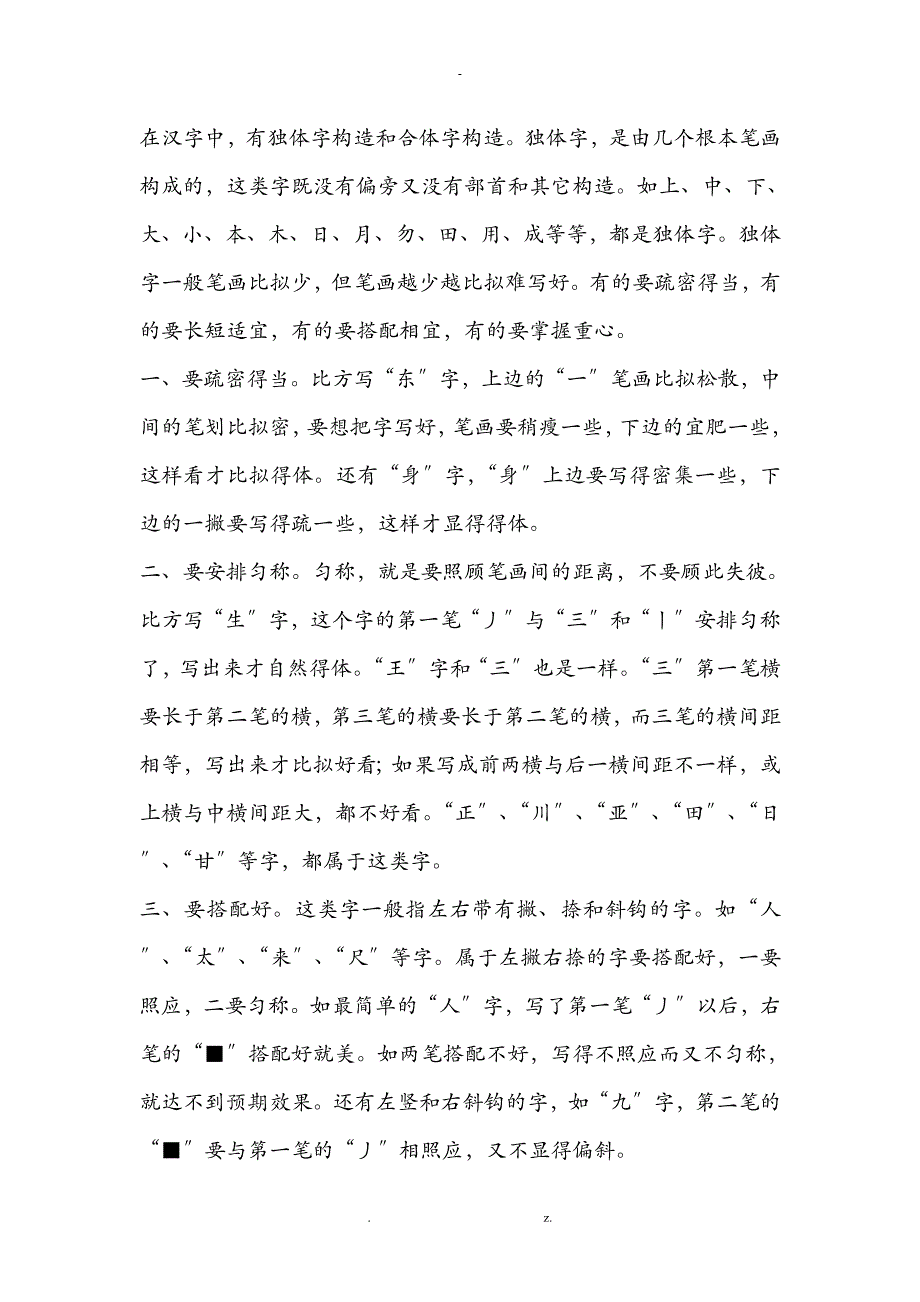 -
在汉字中，有独体字构造和合体字构造。独体字，是由几个根本笔画
构成的，这类字既没有偏旁又没有部首和其它构造。如上、中、下、
大、小、本、木、日、月、勿、田、用、成等等，都是独体字。独体
字一般笔画比拟少，但笔画越少越比拟难写好。有的要疏密得当，有
的要长短适宜，有的要搭配相宜，有的要掌握重心。
一、要疏密得当。比方写“东″字，上边的“一″笔画比拟松散，中
间的笔划比拟密，要想把字写好，笔画要稍瘦一些，下边的宜肥一些，
这样看才比拟得体。还有“身″字，“身″上边要写得密集一些，下
边的一撇要写得疏一些，这样才显得得体。
二、要安排匀称。匀称，就是要照顾笔画间的距离，不要顾此失彼。
比方写“生″字，这个字的第一笔“丿″与“三″和“丨″安排匀称
了，写出来才自然得体。“王″字和“三″也是一样。“三″第一笔横
要长于第二笔的横，第三笔的横要长于第二笔的横，而三笔的横间距
相等，写出来才比拟好看；如果写成前两横与后一横间距不一样，或
上横与中横间距大，都不好看。“正″、“川″、“亚″、“田″、“日
″、“甘″等字，都属于这类字。
三、要搭配好。这类字一般指左右带有撇、捺和斜钩的字。如“人
″、“太″、“来″、“尺″等字。属于左撇右捺的字要搭配好，一要
照应，二要匀称。如最简单的“人″字，写了第一笔“丿″以后，右
笔的“■″搭配好就美。如两笔搭配不好，写得不照应而又不匀称，
就达不到预期效果。还有左竖和右斜钩的字，如“九″字，第二笔的
“■″要与第一笔的“丿″相照应，又不显得偏斜。
. z.